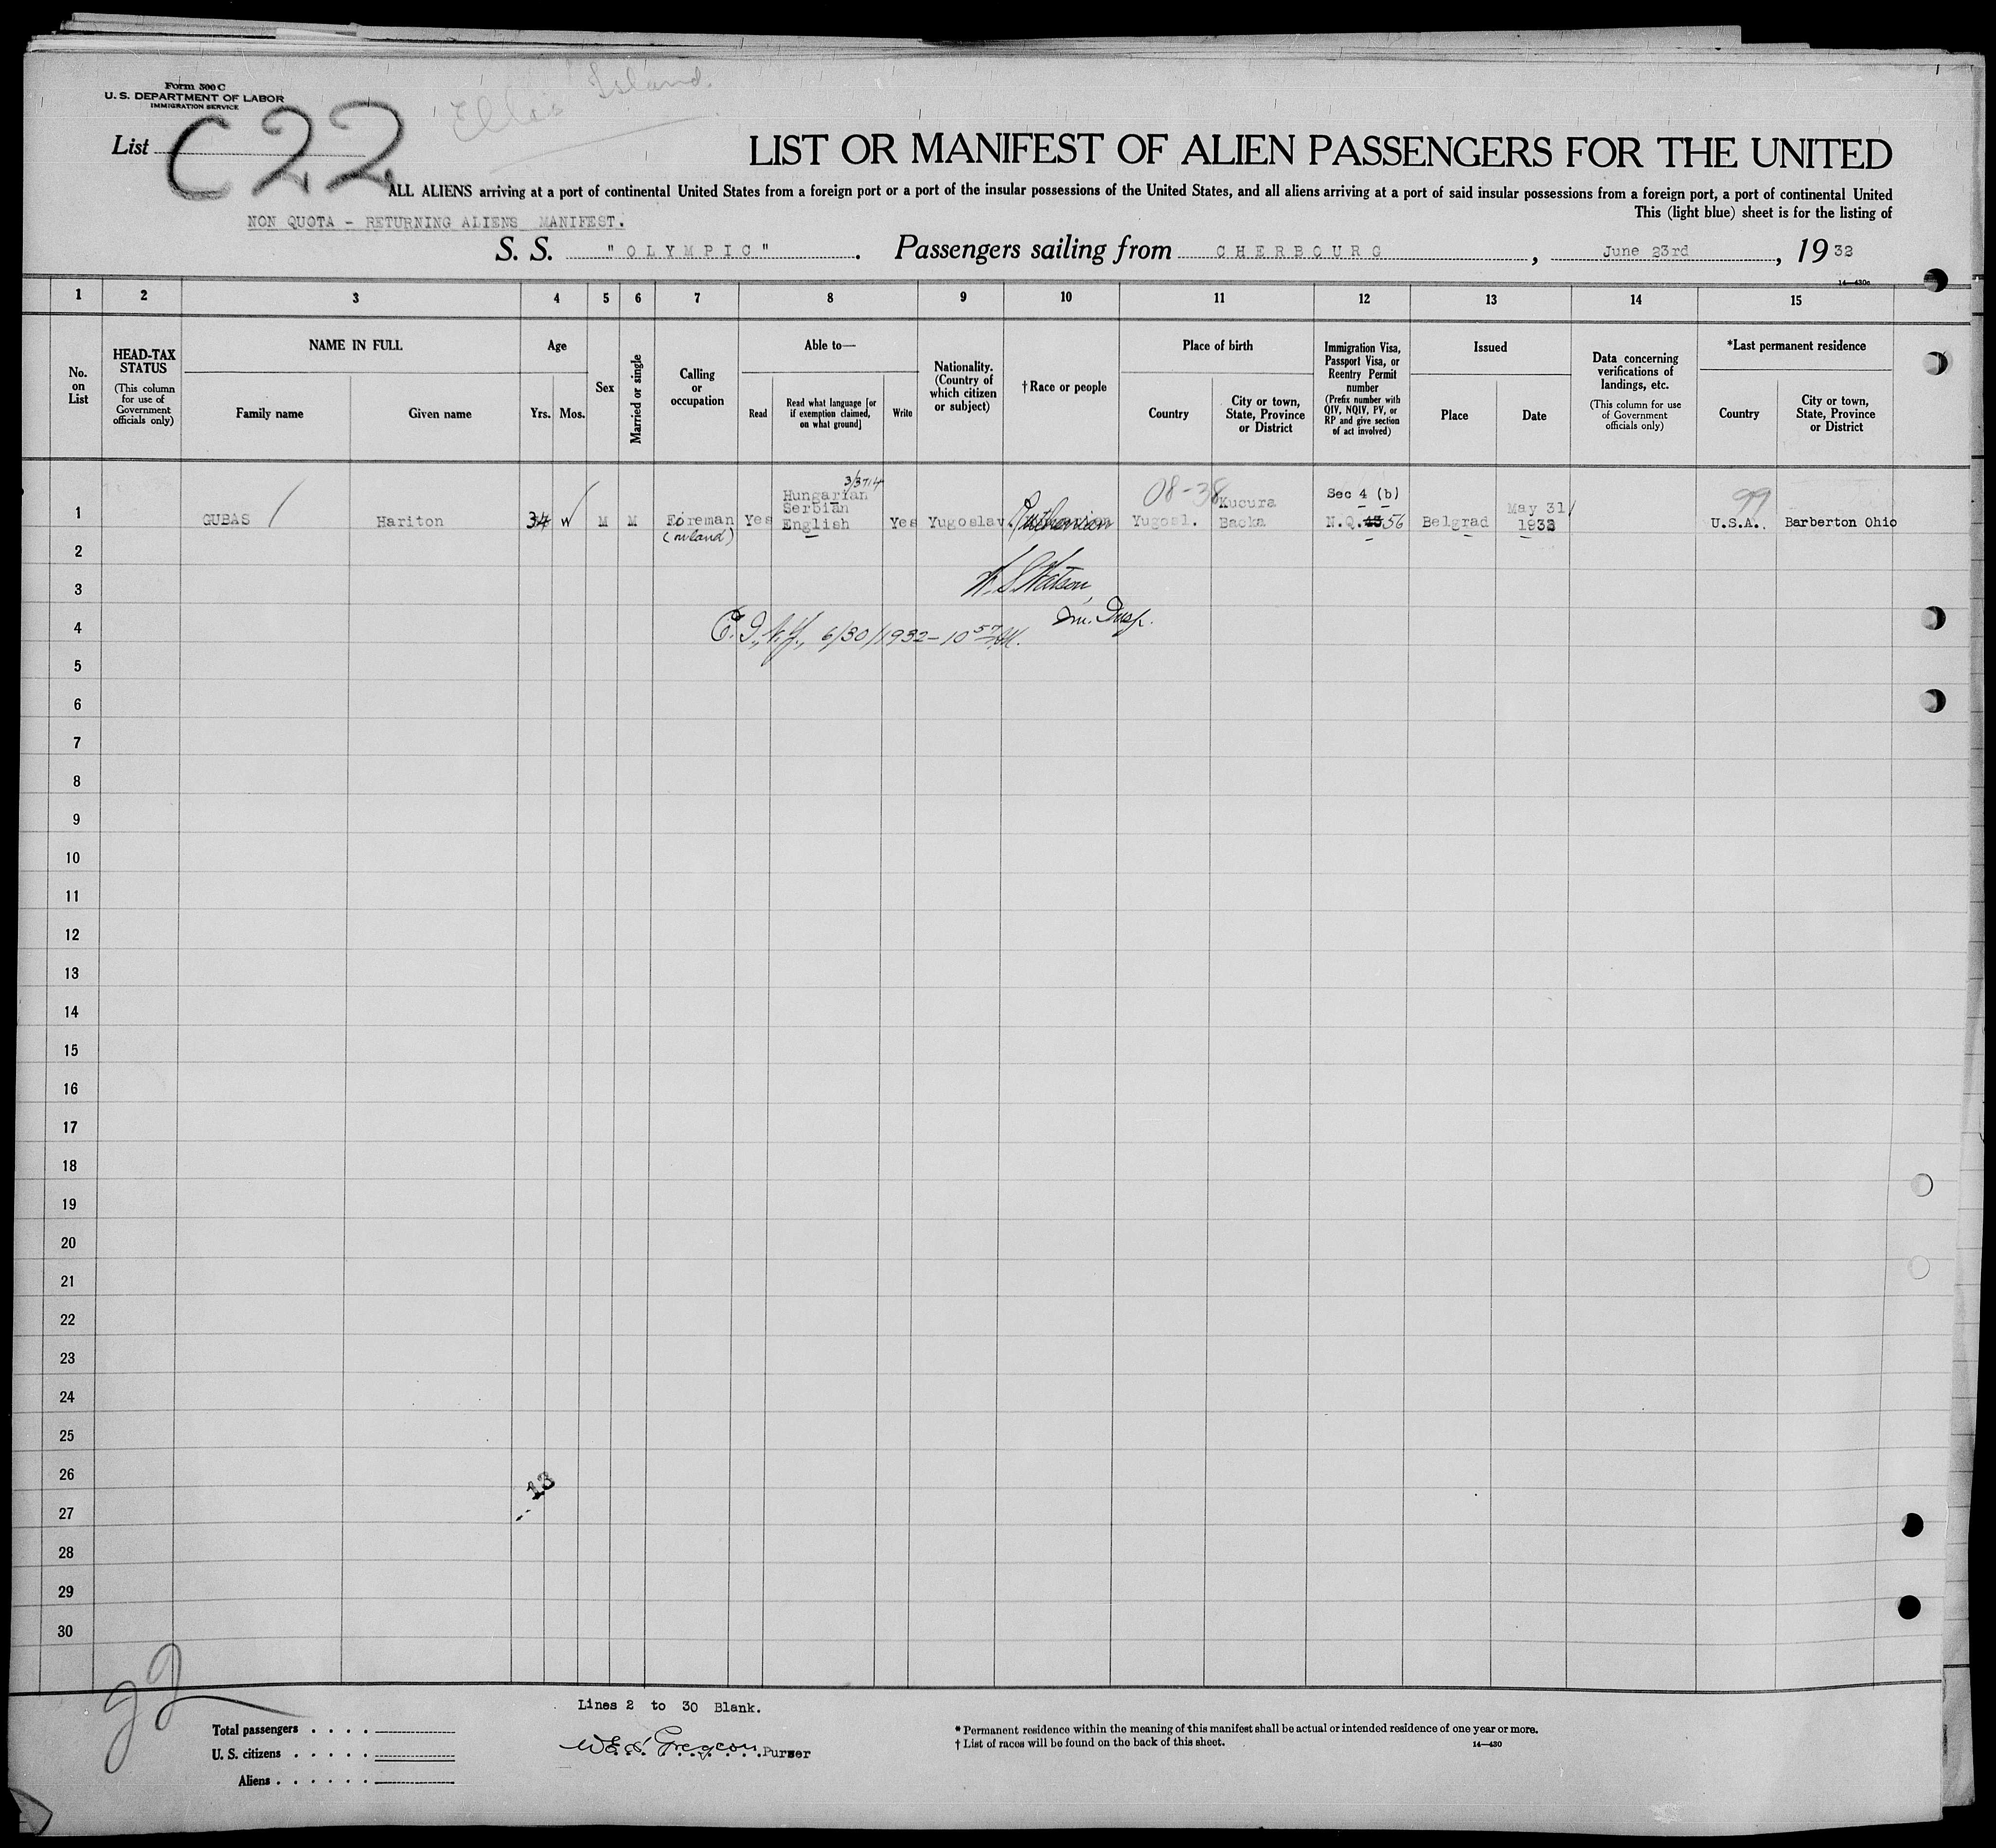 Form 500 C
U. S. DEPARTMENT OF LABOR
IMMIGRATION SERVICE
Ellis Island.
List C22
LIST OR MANIFEST OF ALIEN PASSENGERS FOR THE UNITED
ALL ALIENS arriving at a port of continental United States from a foreign port or a port of the insular possessions of the United States, and all aliens arriving at a port of said insular possessions from a foreign port, a port of continental United
This (light blue) sheet is for the listing of
NON QUOTA - RETURNING ALIENS MANIFEST.
S. S. "OLYMPIC". Passengers sailing from CHERBOURG, June 23rd, 1932
14-430c
1 2 3 4 5 6 7 8 9 10 11 12 13 14 15
No. on List
HEAD-TAX STATUS
(This column for use of Government officials only)
NAME IN FULL
Family name
Given name
Age
Yrs. Mos.
Sex
Married or single
Calling or occupation
Able to—
Read
Read what language [or if exemption claimed, on what ground]
Write
Nationality. (Country of which citizen or subject)
†Race or people
Place of birth
Country
City or town, State, Province or District
Immigration Visa, Passport Visa, or Reentry Permit number
(Prefix number with QIV, NQIV, PV, or RP and give section of act involved)
Issued
Place
Date
Data concerning verifications of landings, etc.
(This column for use of Government officials only)
*Last permanent residence
Country
City or town, State, Province or District
3/3714
08-38
Sec 4 (b)
99
1 GUBAS Hariton 34 W M M Foreman (inland) Yes Hungarian Serbian English Yes Yugoslav. Ruthenian Yugosl. Kucura Backa N.Q. 56 Belgrad May 31/ 1932 U.S.A. Barberton Ohio
2
3
4
E.I., N.Y., 6/30/1932-10 57 AM.
Im. Insp.
5
6
7
8
9
10
11
12
13
14
15
16
17
18
19
20
21
22
23
24
25
26
13
27
28
29
30
Lines 2 to 30 Blank.
Total passengers . . . .
U. S. citizens . . . . .
Aliens . . . . . .
Purser
* Permanent residence within the meaning of this manifest shall be actual or intended residence of one year or more.
† List of races will be found on the back of this sheet.
14-430